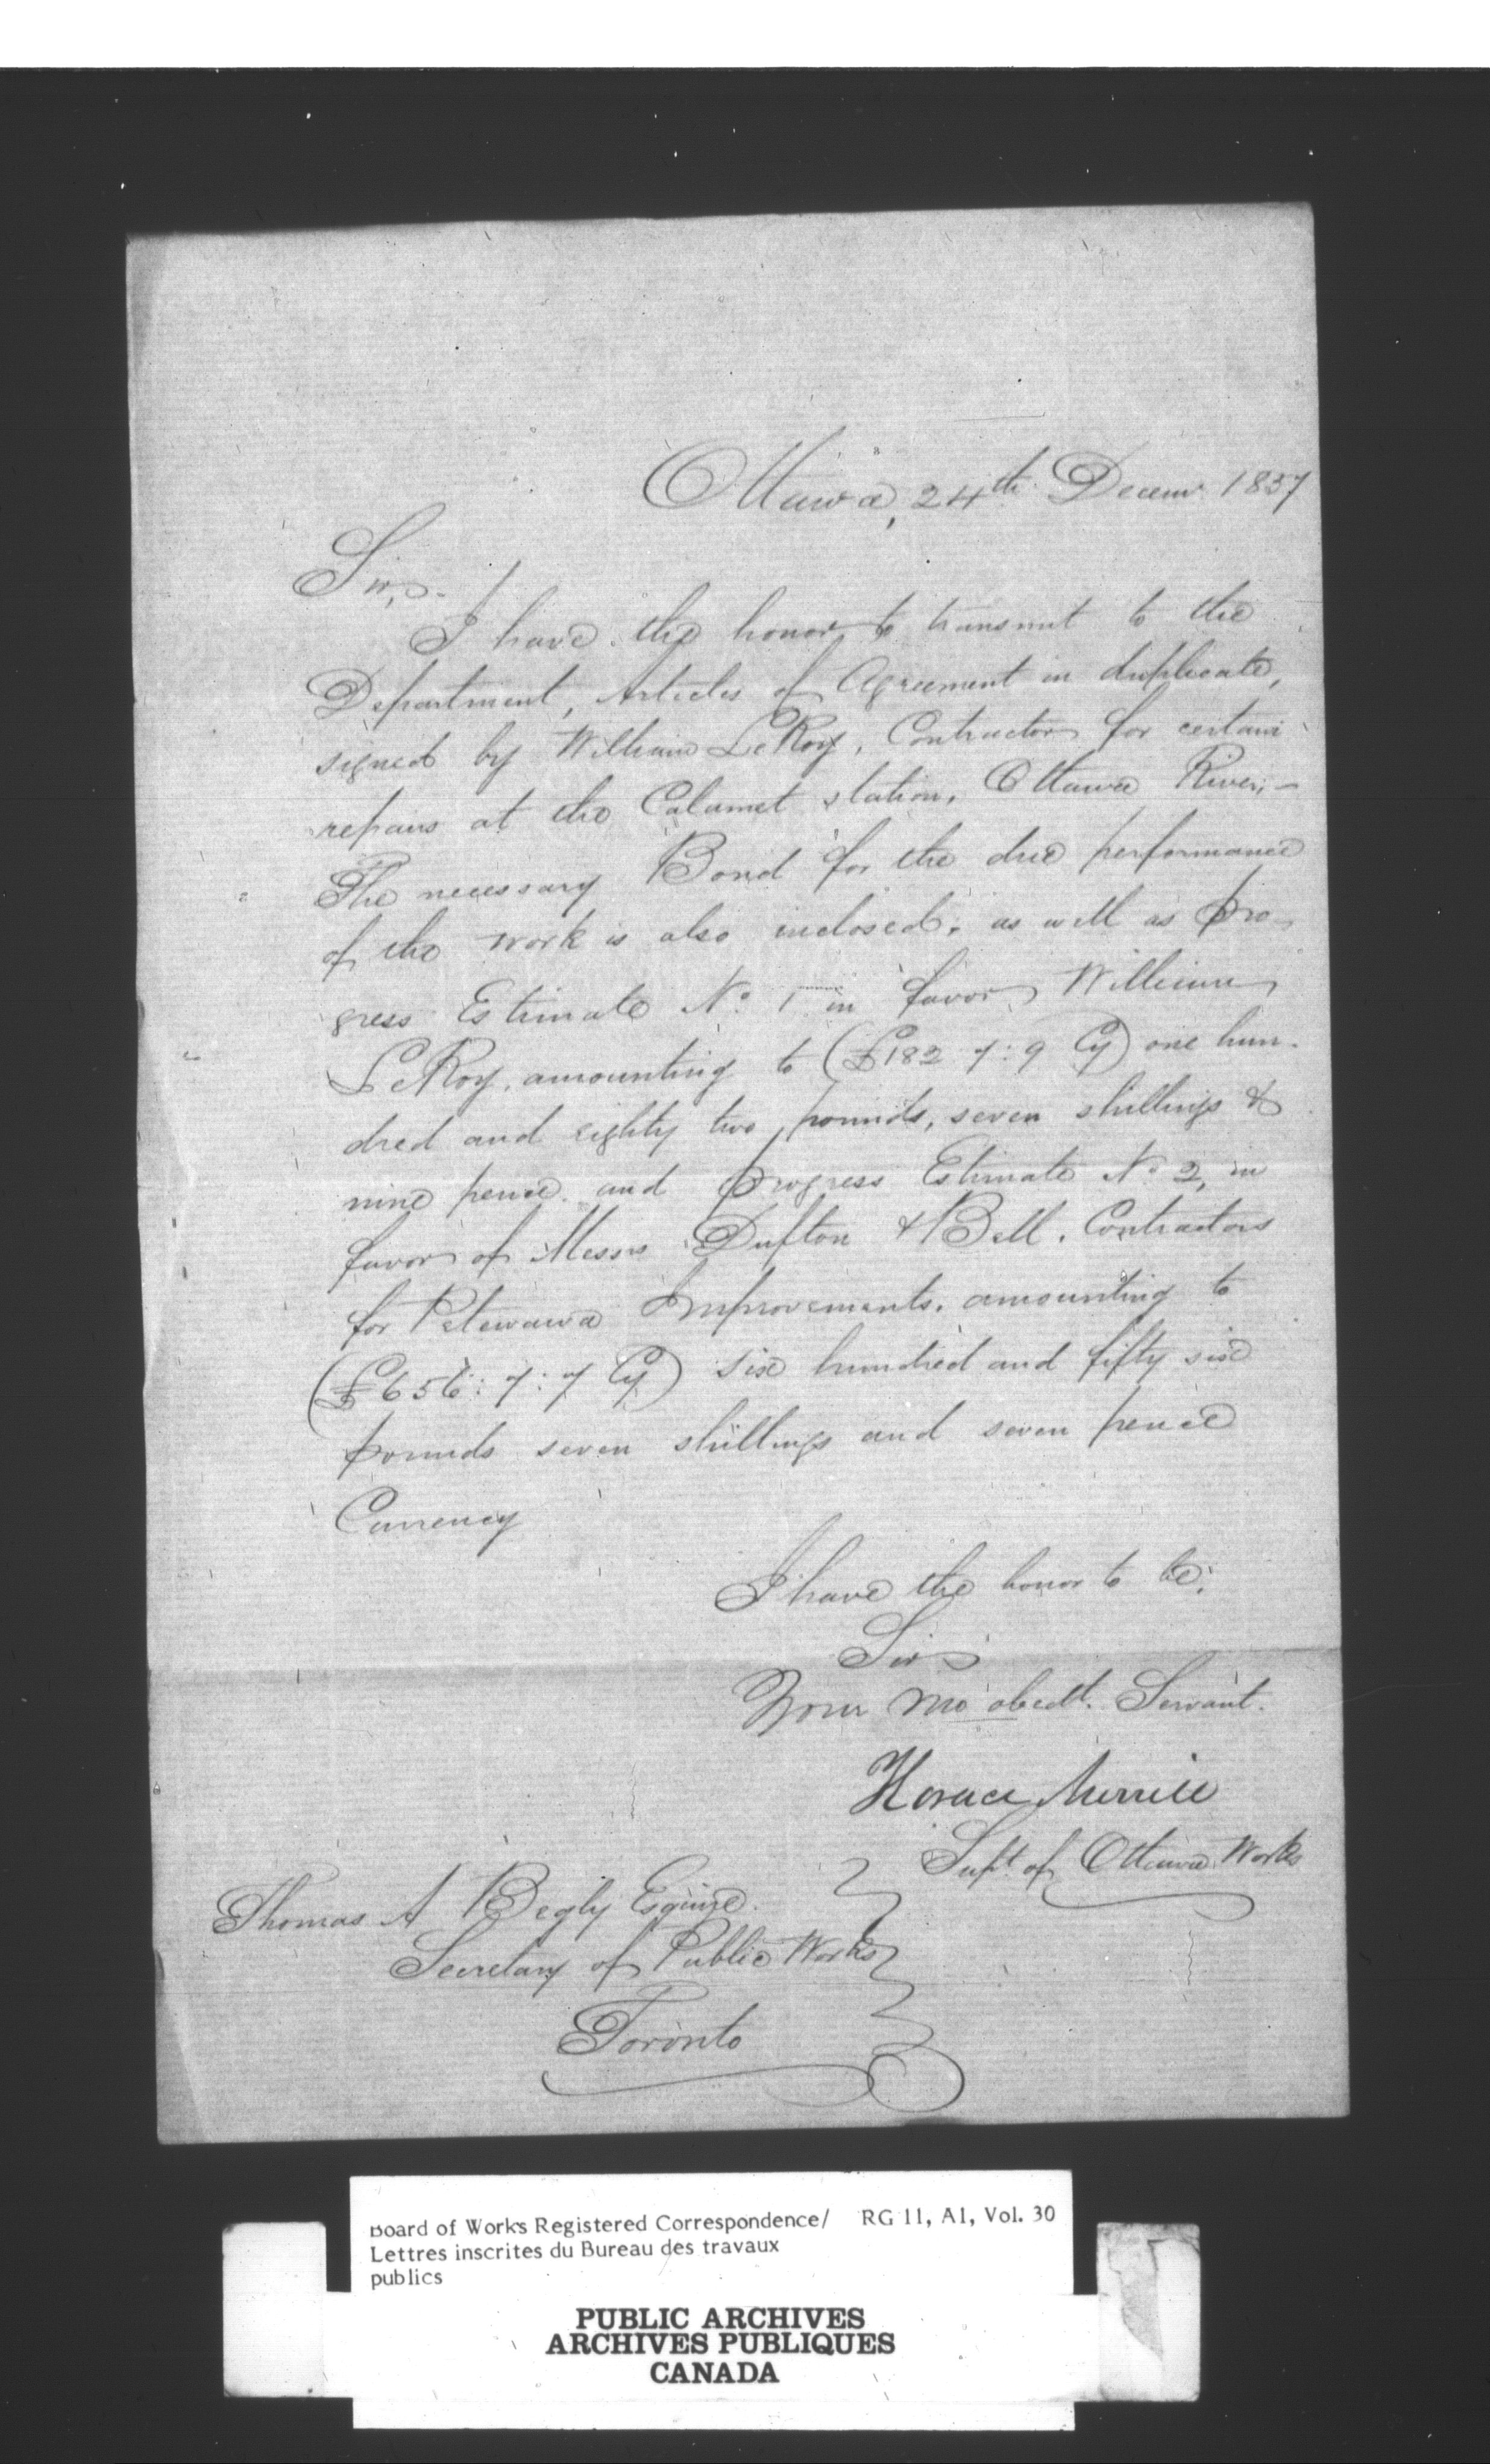 Ottawa, 24th Decemr 1857
Sir,
I have the honor to transmit to the
Department, Articles of Agreement in duplicate,
signed by William LeRoy, Contractor for certain
repairs at the Calumet station, Ottawa River, -
The necessary Bond for the due performance
of the work is also inclosed, as well as Pro-
gress Estimate No. 1 in favor William
LeRoy, amounting to (£182 7: 9 Cy) one hun-
dred and eighty two pounds, seven shillings &
nine pence. and Progress Estimate No 2, in
favor of Messrs Dufton & Bell, Contractors
for Petewawa Improvements, amounting to
(£656: 7: 7 Cy) six hundred and fifty six
pounds seven shillings and seven pence
Currency
I have the honor to be,
Sir
Your Mo obedt. Servant.
Horace Merrill
Supt of Ottawa Works
Thomas A Begly Esquire.
Secretary of Public Works
Toronto
Board of Works Registered Correspondence/ RG 11, A1, Vol. 30
Lettres inscrites du Bureau des travaux
publics
PUBLIC ARCHIVES
ARCHIVES PUBLIQUES
CANADA